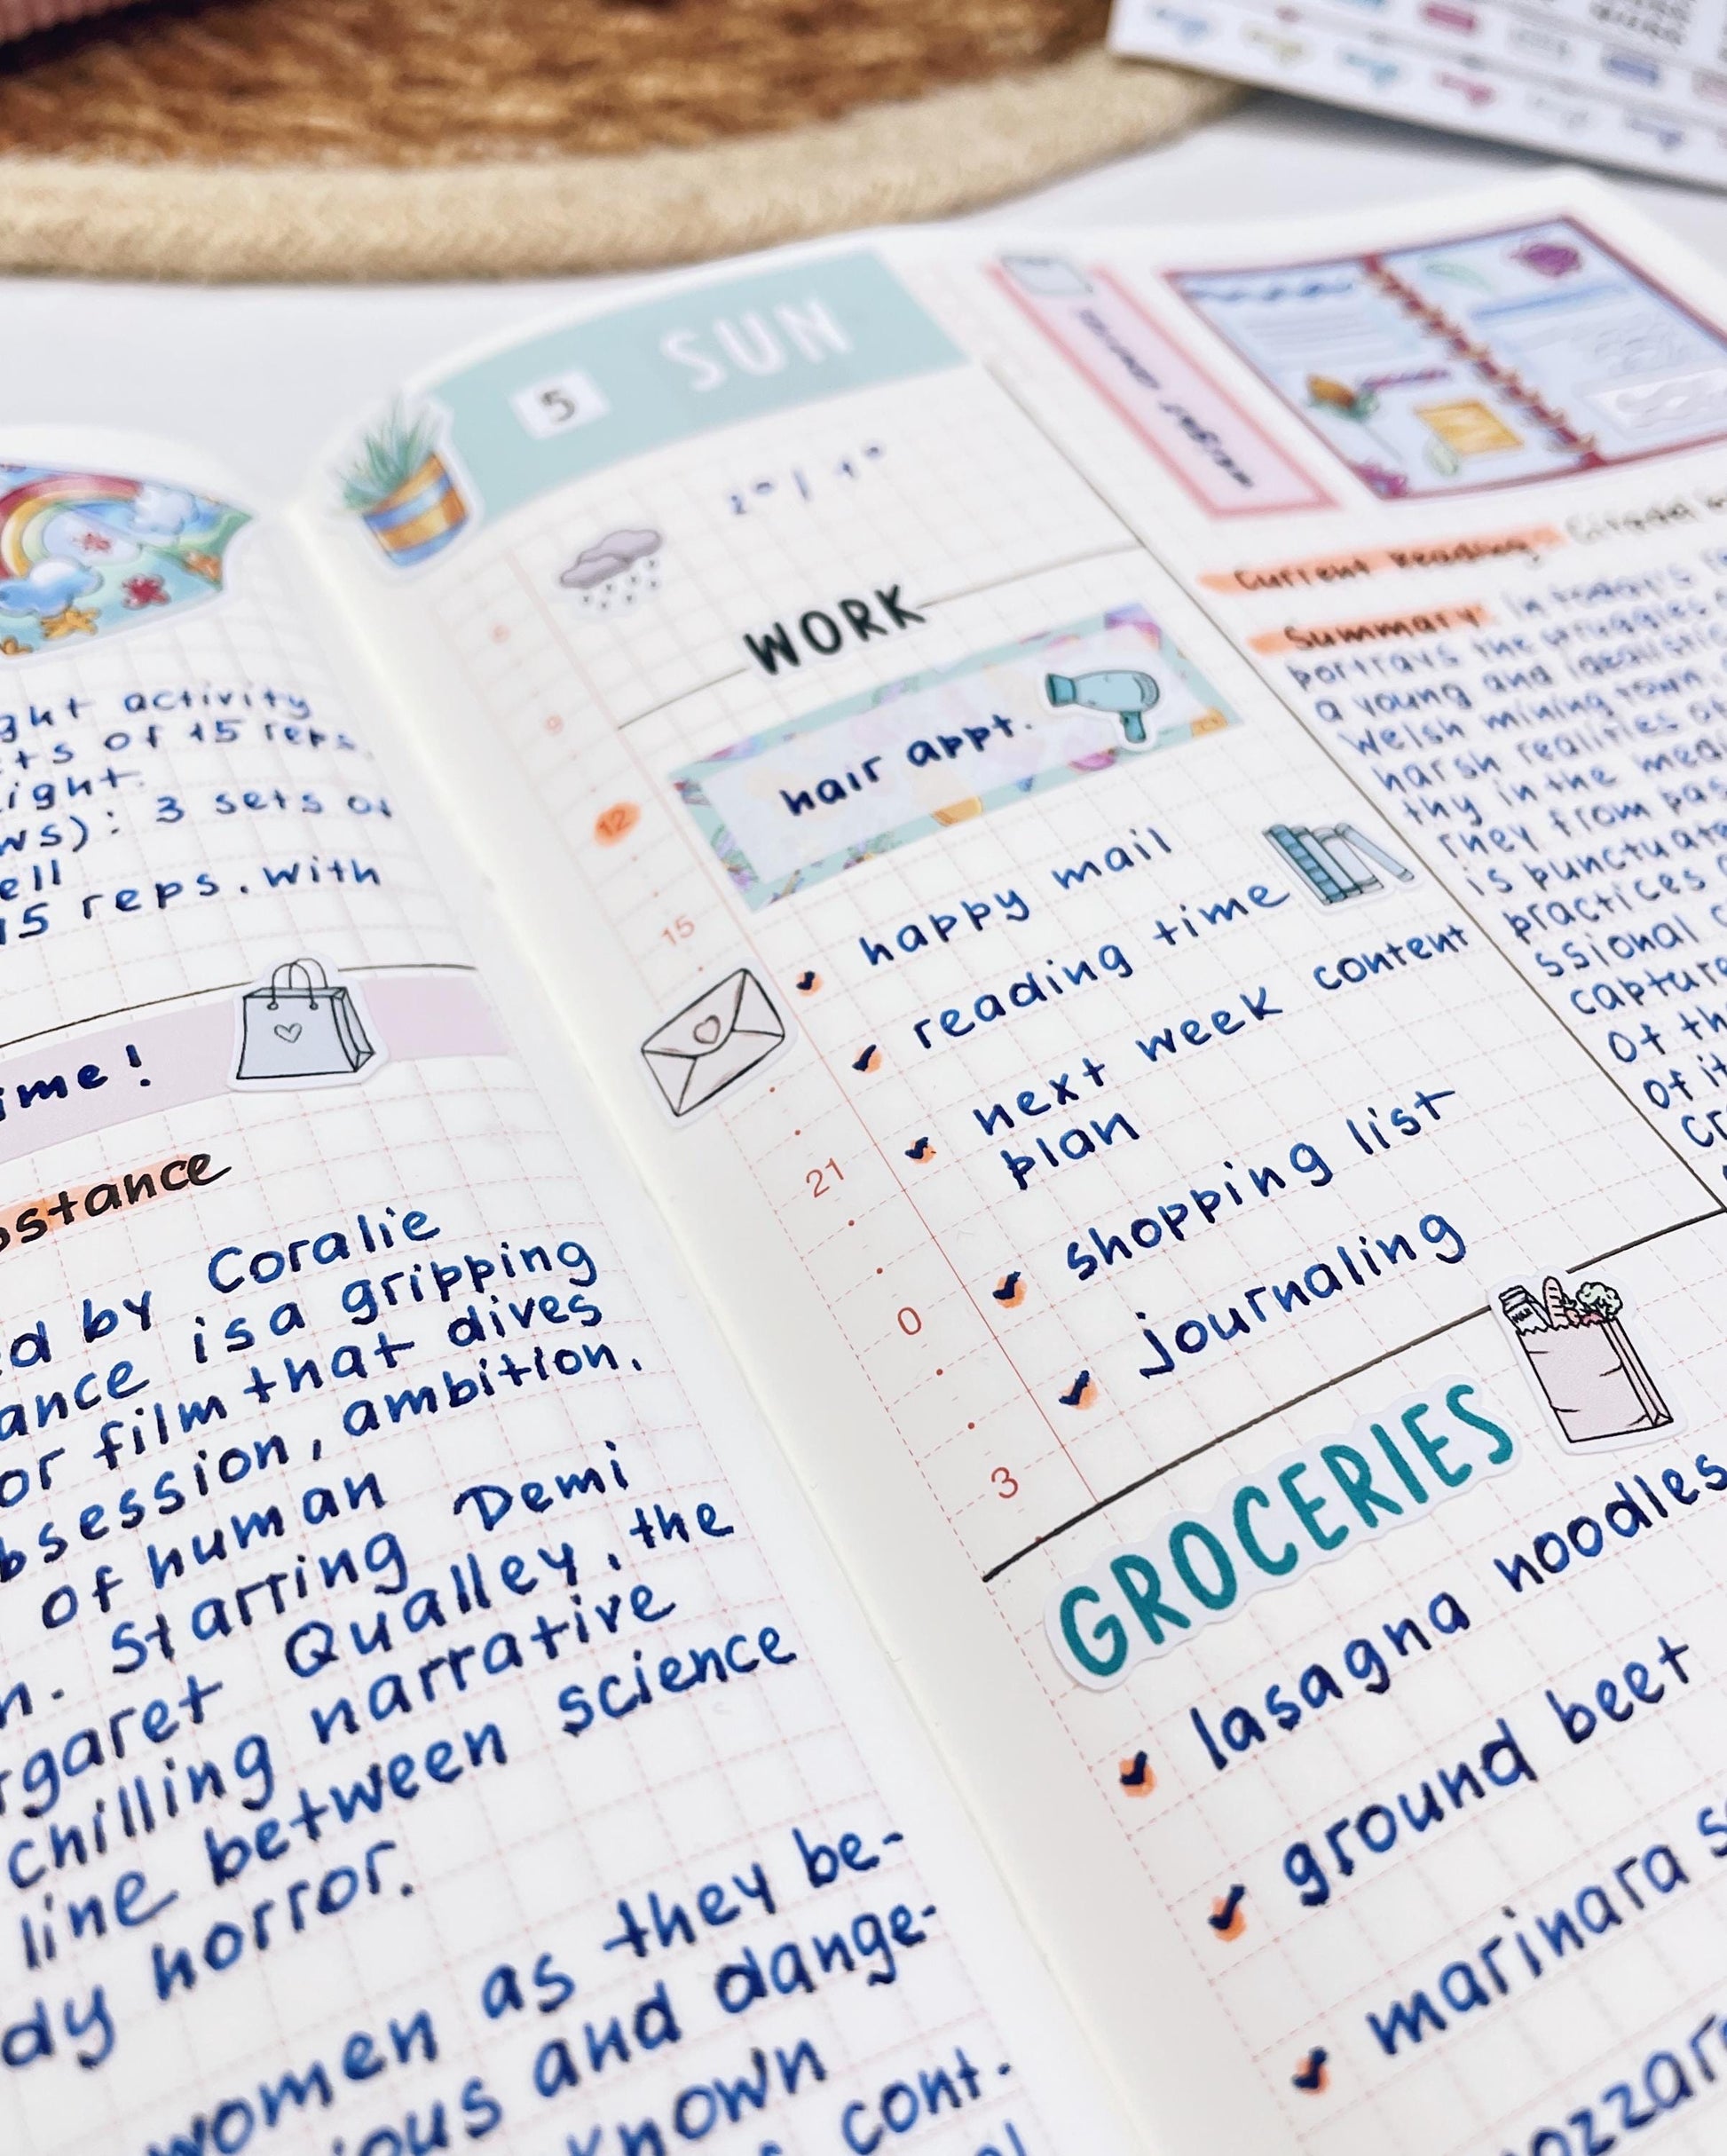 ght activity
ts of 15 reps.
ight.
ws): 3 sets of
ell
15 reps. with
ime!
bstance
ed by Coralie
ance is a gripping
or film that dives
bsession, ambition,
of human
n. Starring Demi
rgaret Qualley, the
chilling narrative
line between science
dy horror.
women as they be-
ious and dange-
known
cont.
5 SUN
2° | 1°
WORK
hair appt.
happy mail
reading time
next week content
plan
shopping list
journaling
6
9
12
15
21
0
3
GROCERIES
lasagna noodles
ground beet
marinara s
ozzar
Current Reading: Citadel
Summary: In today's
portrays the struggles
a young and idealistic
Welsh mining town,
harsh realities of
thy in the medi
rney from pas
is punctuat
practices
ssional c
captur
of th
of it
cr